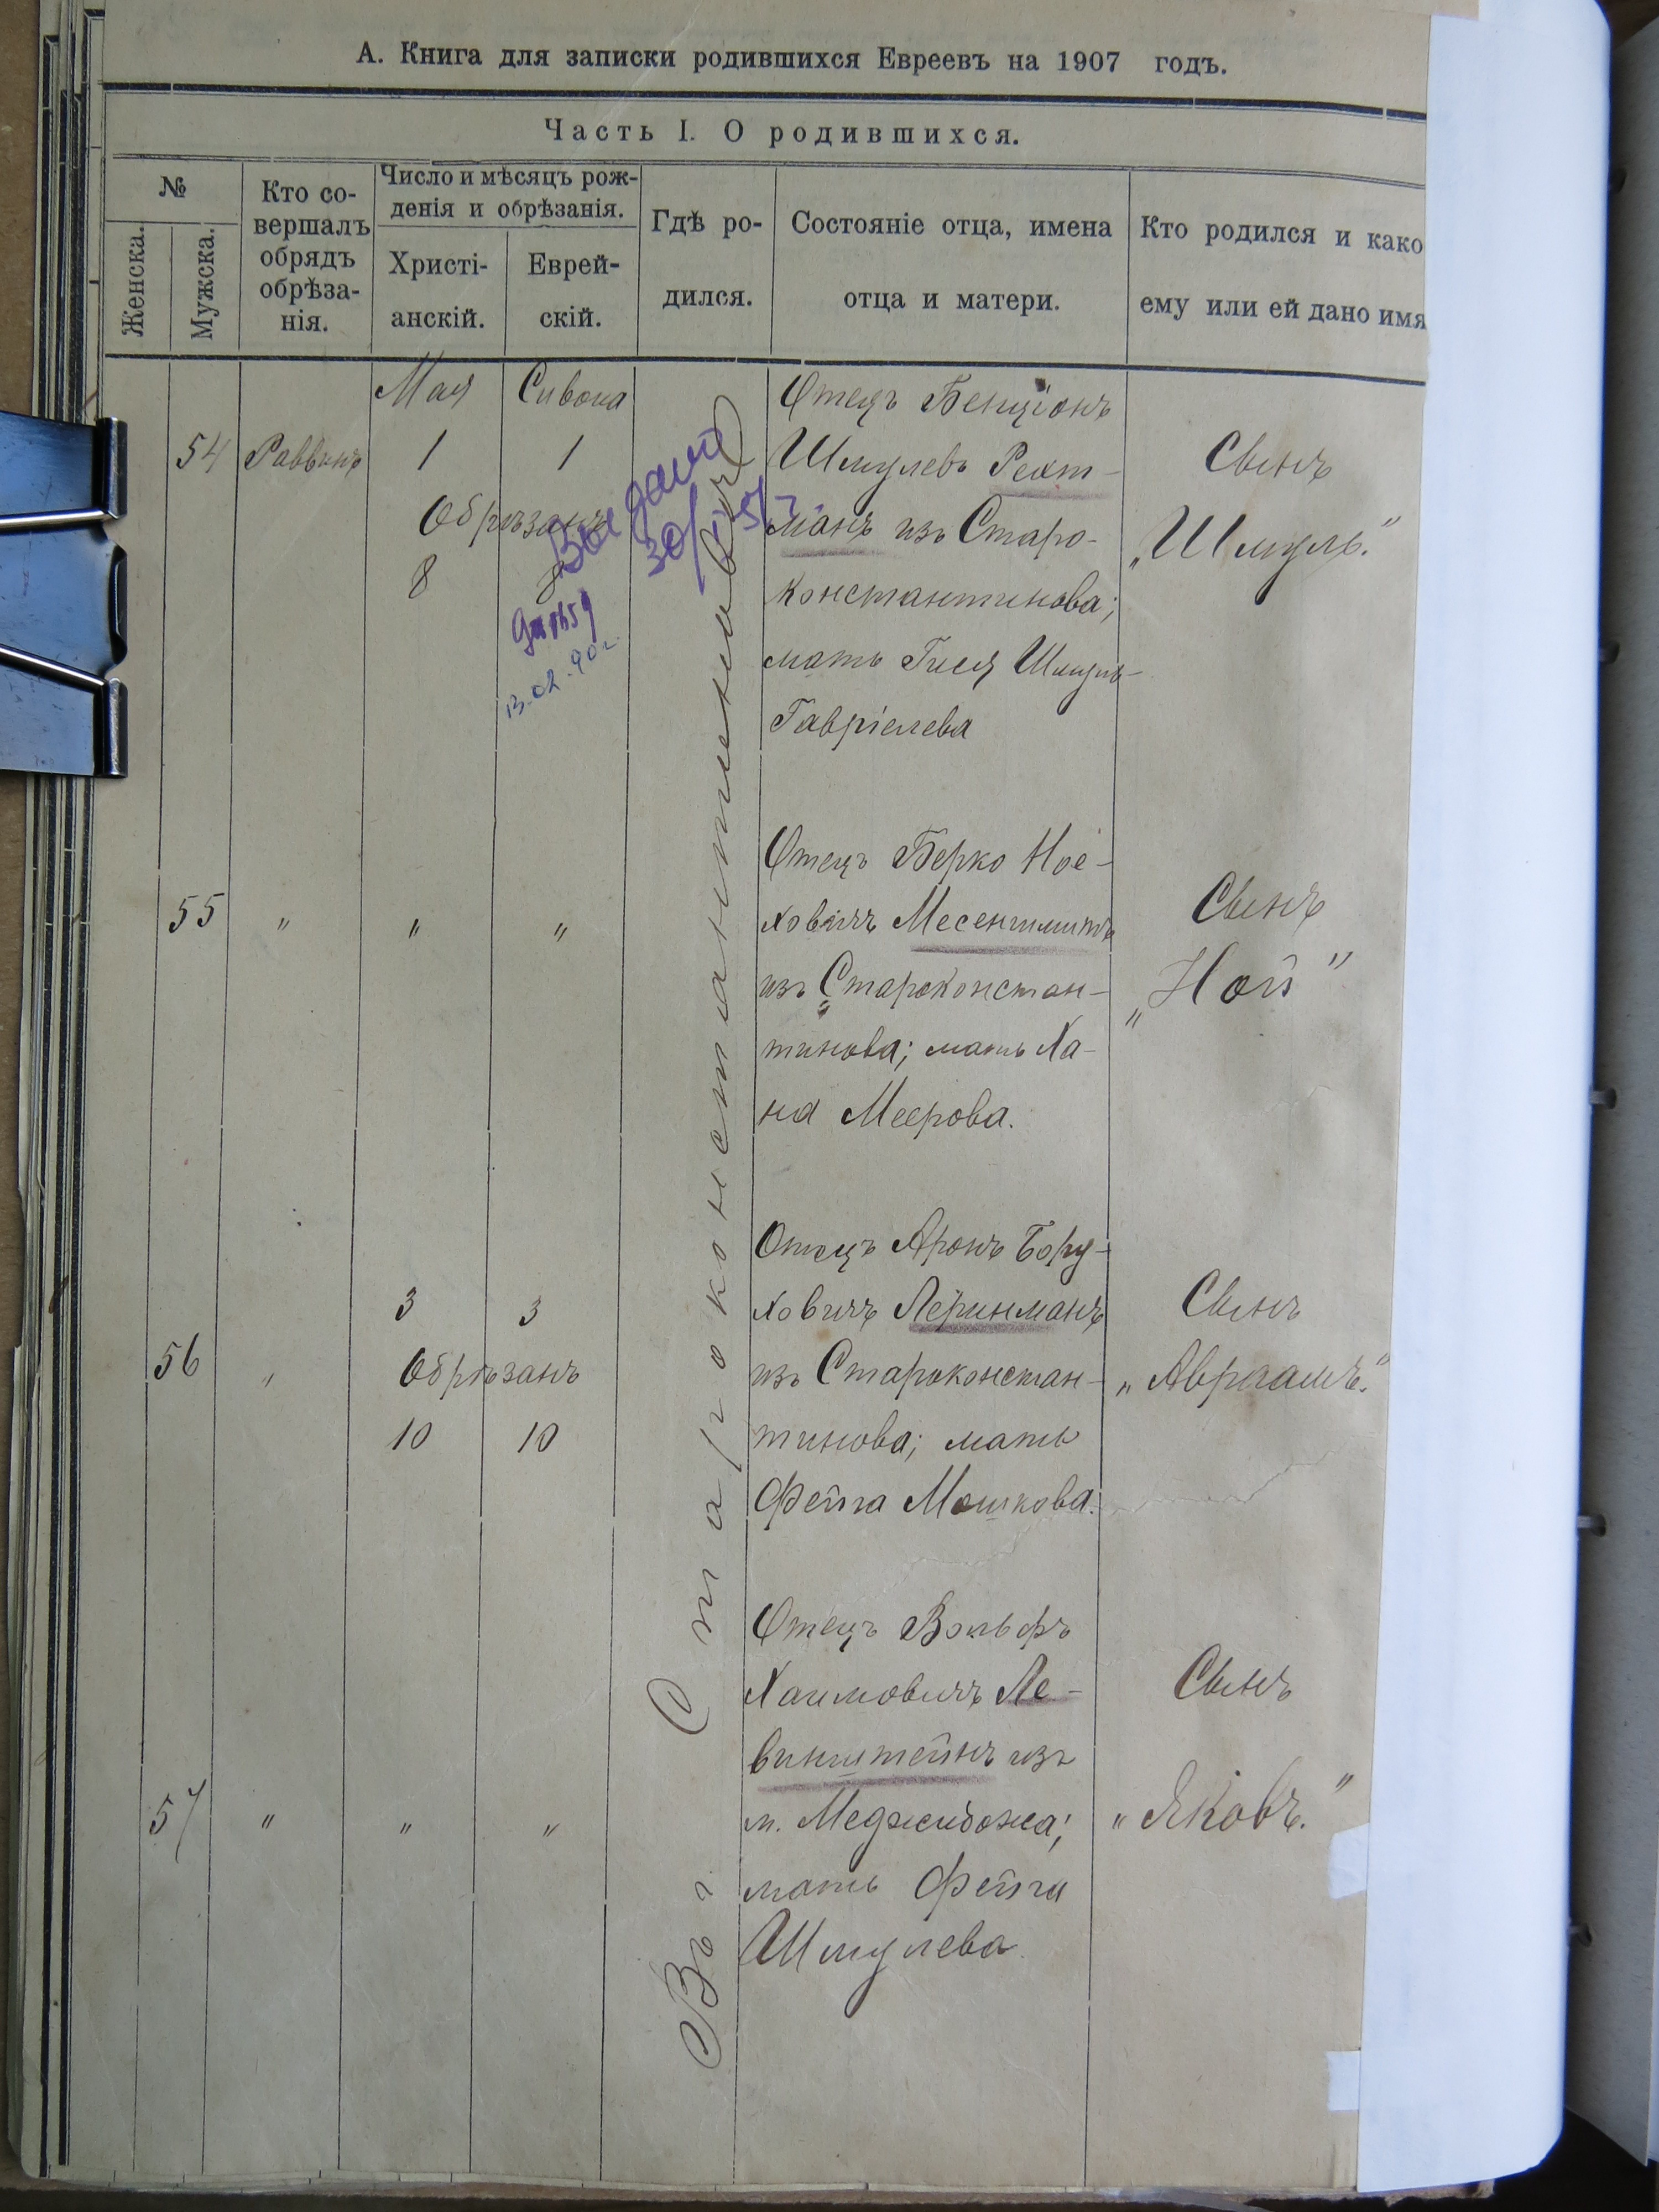 А. Книга для записки родившихся Евреевъ на 1907 годъ.
Часть I. О родившихся.
№
Женска.
Мужска.
Кто со-
вершалъ
обрядъ
обрѣза-
нія.
Число и мѣсяцъ рож-
денія и обрѣзанія.
Христі-
анскій.
Еврей-
скій.
Гдѣ ро-
дился.
Состояніе отца, имена
отца и матери.
Кто родился и како
ему или ей дано имя
Мая Сивона
54 Раввинъ 1 1
Обрѣзанъ
8 8
13.02.90г.
Въ г. Староконстантиновѣ
Отецъ Бенціонъ
Шмулевъ Рехт-
манъ изъ Старо-
константинова;
мать Гися Шмуль-
Гавріелева
Сынъ
„Шмуль."
55 " " "
Отецъ Берко Ное-
ховичъ
изъ Староконстан-
тинова; мать Ха-
на Меерова.
Сынъ
„Ной"
3 3
56 " Обрѣзанъ
10 10
Отецъ Аронъ Бору-
ховичъ Леринманъ
изъ Староконстан-
тинова; мать
Фейга Мошкова.
Сынъ
„Авраамъ."
57 " " "
Отецъ Вольфъ
Хаимовичъ Ле-
винштейнъ изъ
м. Меджибожа;
мать Фейга
Шмулева.
Сынъ
„Яковъ."